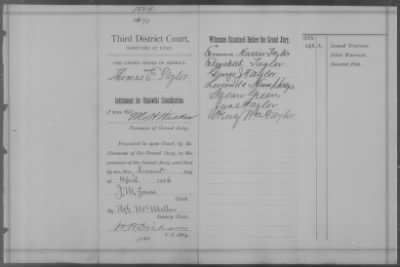 1564
Third District Court,
TERRITORY OF UTAH.
THE UNITED STATES OF AMERICA,
vs.
Thomas E. Taylor
Indictment for Unlawful Cohabitation.
A true bill.
Foreman of Grand Jury.
Presented in open Court, by the
Foreman of the Grand Jury, in the
presence of the Grand Jury, and filed
by me, this Second day
of April 1886
Clerk.
By H.G. McMillan
Deputy Clerk.
U. S. Atty.
Witnesses Examined Before the Grand Jury.
Emma Harris Taylor
Elizabeth Taylor
George J Taylor
Lucinda Humphreys
Susan Green
Jane Taylor
Henry Wm Taylor
1886
Issued Warrant.
Returned Warrant.
Entered Plea.